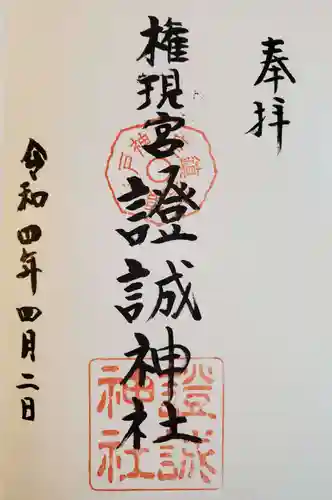 奉拝
権現宮
證誠神社
令和四年四月二日
證誠
神社